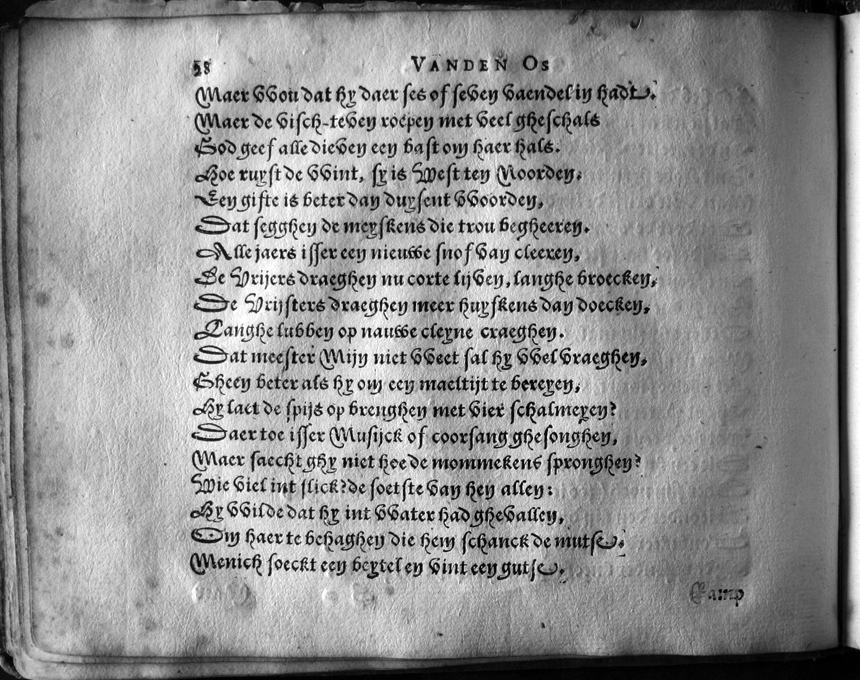 28 VANDEN OS
Maer VVou dat hy daer ses of seven vaendel in hadt.
Maer de visch-teven roepen met veel gheschals
God geef alle dieven een bast om haer hals.
Hoe ruyst de VVint, sy is West ten Noorden:
Een gifte is beter dan duysent VVoorden,
Dat segghen de meyskens die trou begheeren.
Alle jaers isser een nieuwe snof van cleeren,
De Vrijers draeghen nu corte lijven, langhe broecken,
De Vrijsters draeghen meer huyskens dan doecken,
Langhe lubben op nauwe cleyne craeghen.
Dat meester Mijn niet VVeet sal hy VVel vraeghen,
Gheen beter als hy om een maeltijt te bereyen,
Hy laet de spijs op brenghen met vier schalmeyen?
Daer toe isser Musijck of coorsang ghesonghen,
Maer saecht ghy niet hoe de mommekens spronghen?
Wie viel int slick? de soetste van hen allen:
Hy VVilde dat hy int VVater had ghevallen,
Om haer te behaghen die hem schanck de mutse.
Menich soeckt een beytel en vint een gutse.
Camp